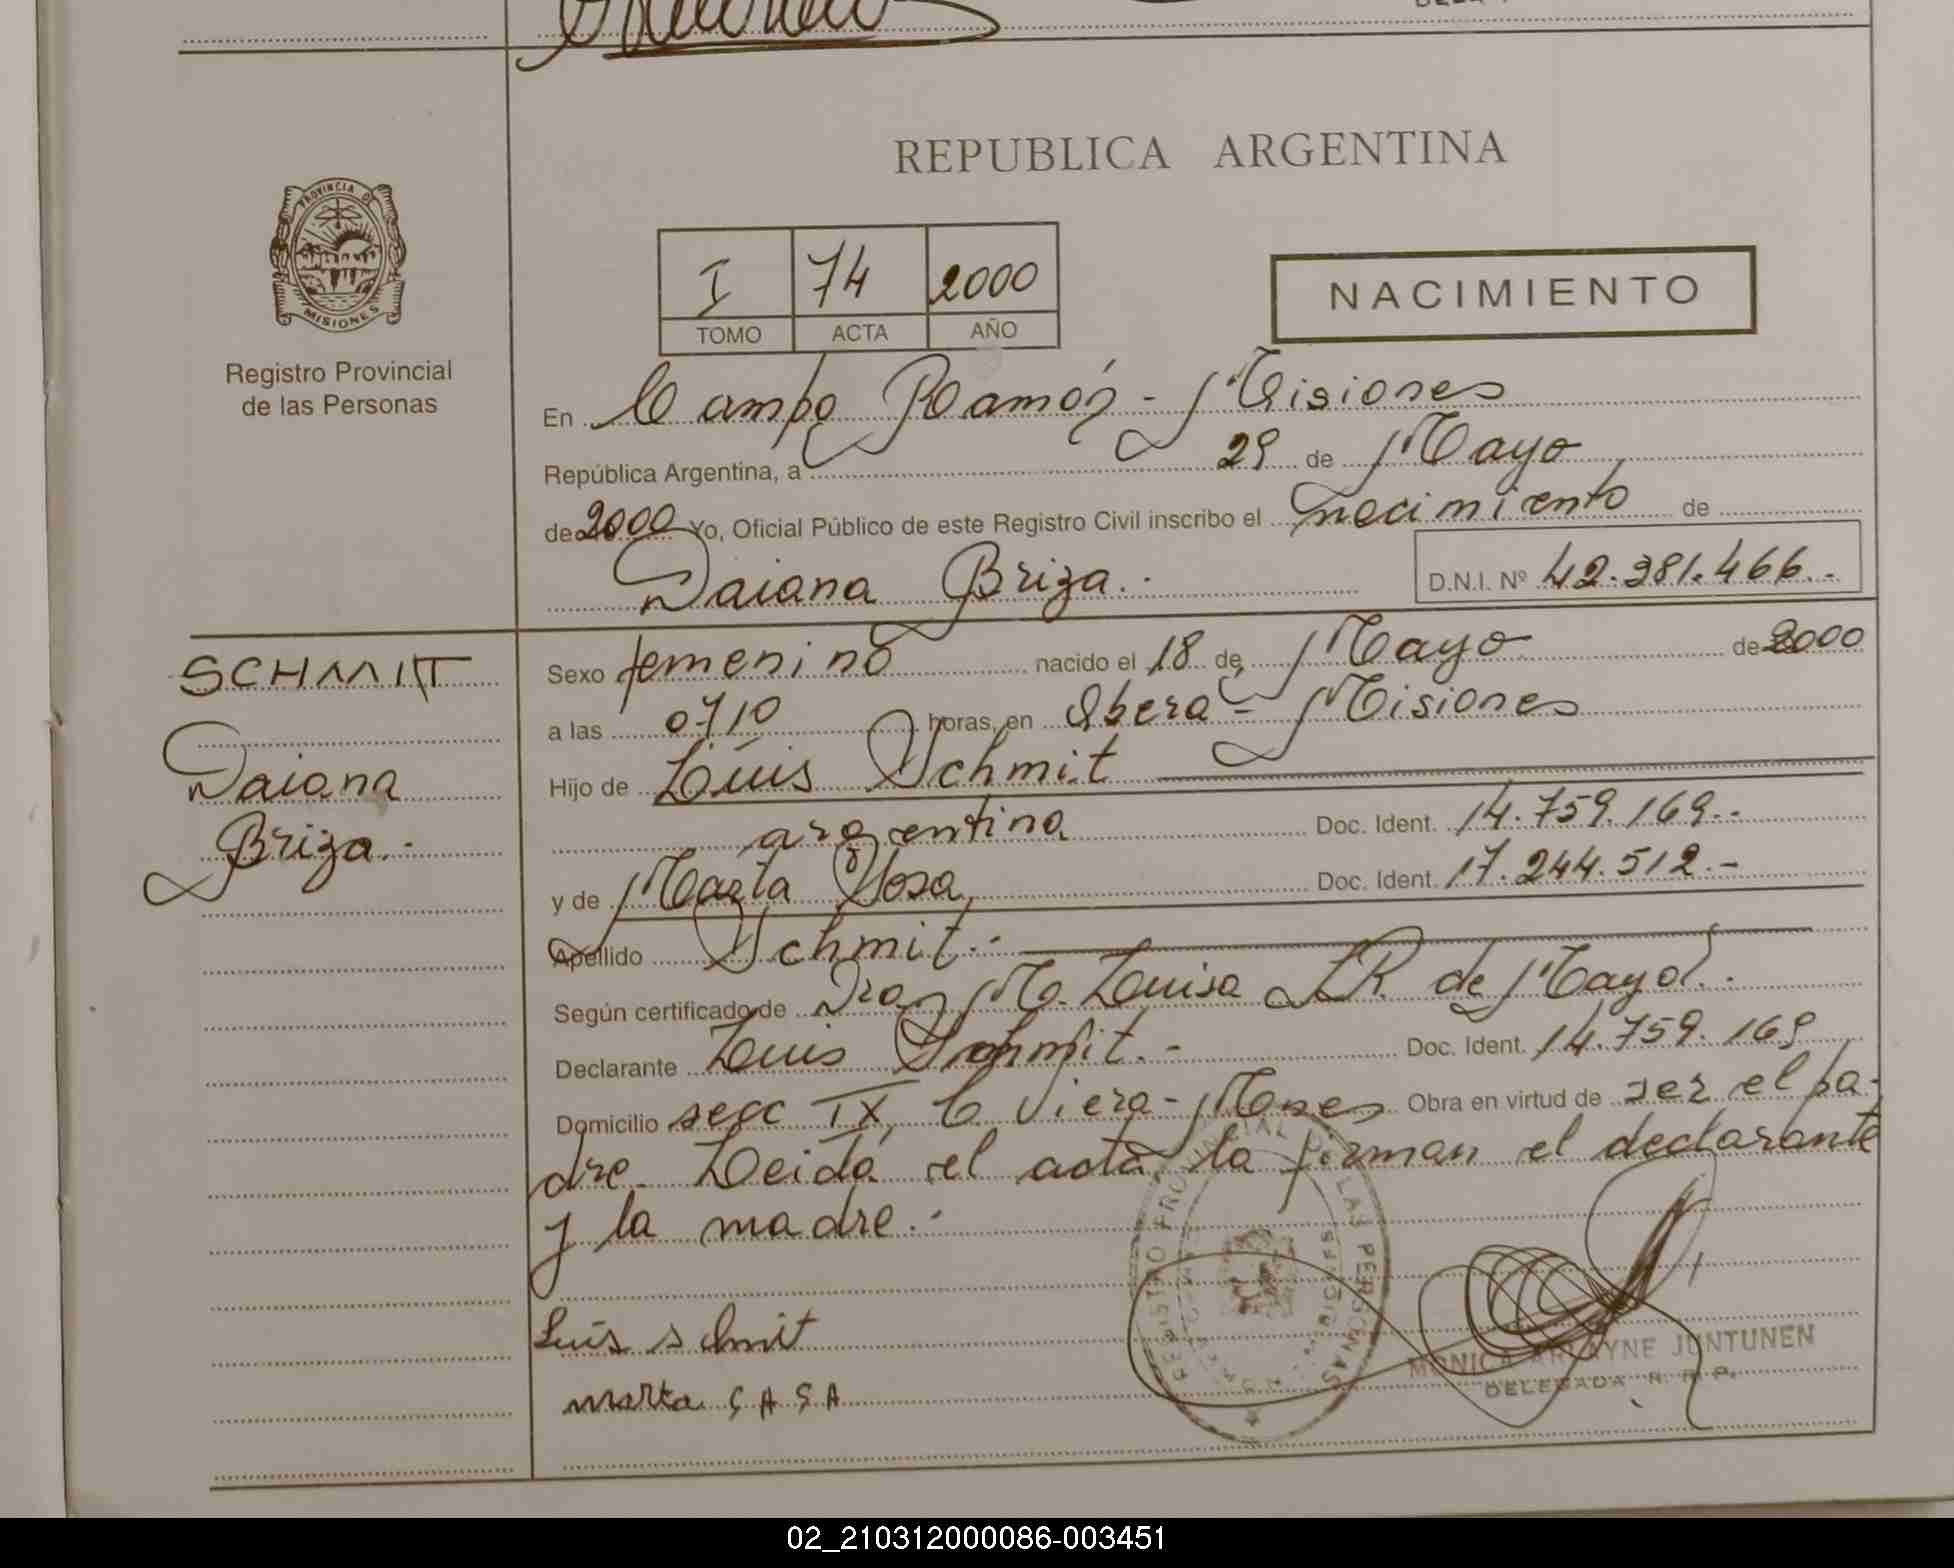 REPUBLICA ARGENTINA
PROVINCIA DE
MISIONES
Registro Provincial
de las Personas
I 74 2000
TOMO ACTA AÑO
NACIMIENTO
En Campo Ramón - Misiones
República Argentina, a 29 de Mayo
de 2000 Yo, Oficial Público de este Registro Civil inscribo el nacimiento de
Daiana Briza.- D.N.I. Nº 42.381.466.-
SCHMIT
Daiana
Briza.-
Sexo femenino nacido el 18 de Mayo de 2000
a las 0710 horas, en Oberá - Misiones
Hijo de Luis Schmit
argentina Doc. Ident. 14.759.169.-
y de Marta Sosa Doc. Ident. 17.244.512.-
Apellido Schmit.-
Según certificado de Dra M. Luisa R. de Mayol.-
Declarante Luis Schmit.- Doc. Ident. 14.759.169
Domicilio secc IX, C. Viera - Mnes Obra en virtud de ser el pa-
dre. Leida el acta la firman el declarante
y la madre.-
Luis schmit
marta SASA
REGISTRO PROVINCIAL DE LAS PERSONAS
MISIONES
MONICA ARLAYNE JUNTUNEN
DELEGADA R.R.P.
02_210312000086-003451